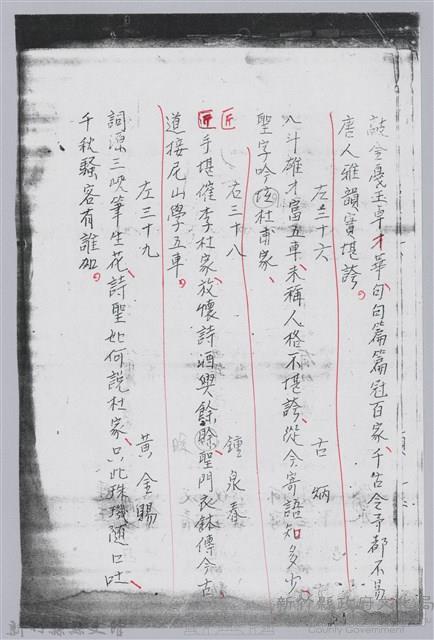 敲金戛玉卓才華句句篇篇冠百家千古令予都不易
唐人雅韻實堪誇
左三十六 古炳
八斗雄才富五車未稱人格不堪誇從今寄語知多少
聖字吟壇杜甫家
右三十八 鍾泉春
匠
匠手堪催李杜家放懷詩酒興餘賒聖門衣鉢傳今古
道接尼山學五車
左三十九 黃金賜
詞源三峽筆生花詩聖如何說杜家只此珠璣隨口吐
千秋騷客有誰加
新竹縣政府文化局
County Government